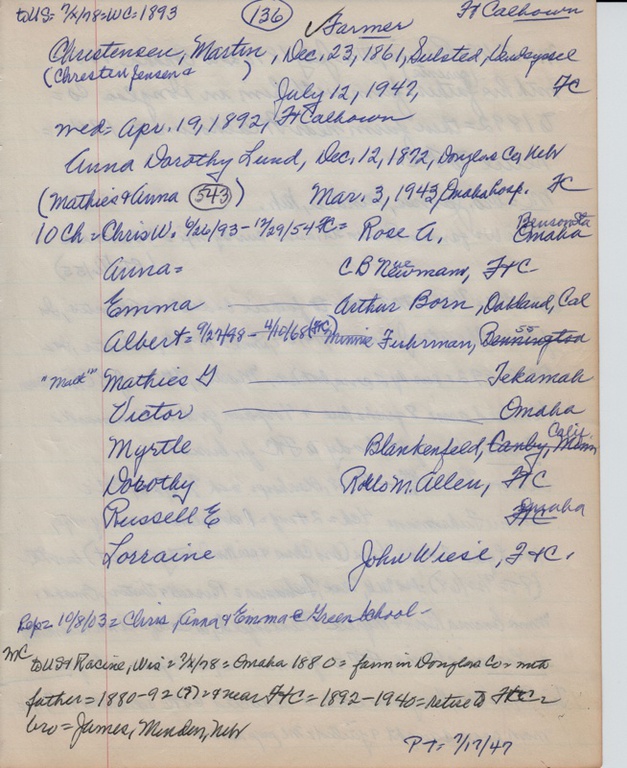 to US= ?/X/78=WC=1893 136 Farmer Ft Calhoun
Christensen, Martin, Dec. 23, 1861, Sulsted, Vendsyssel
(Christen Jensen & )
July 12, 1947, FC
med= Apr. 19, 1892, Ft Calhoun
Anna Dorothy Lund, Dec. 12, 1872, Douglas Co, Nebr
(Mathies & Anna 543) Mar. 3, 1943, Omaha hosp. FC
10 Ch = Chris W. 6/26/93 - 12/29/54 FC = Rose A. Benson Sta Omaha
Anna= C B Newmann, FtC
Emma Arthur Born, Oakland, Cal
Albert = 9/27/98 - 4/10/68 (FC) Minnie Fuhrman, Bennington
"Matt" Mathies G Tekamah
Victor Omaha
Myrtle Blankenfeld, Canby, Minn Calif.
Dorothy Rollo M. Allen, FtC
Russell E FtC Omaha
Lorraine John Wiese, FtC.
Rep= 10/8/03 = Chris, Anna & Emma @ Green School -
MC to US & Racine, Wis = ?/X/78 = Omaha 1880 = farm in Douglas Co = mth
father = 1880-92 (?) = & near FtC = 1892-1940 = retire to FtC =
bro = James, Minden, Nebr
PT = 7/17/47